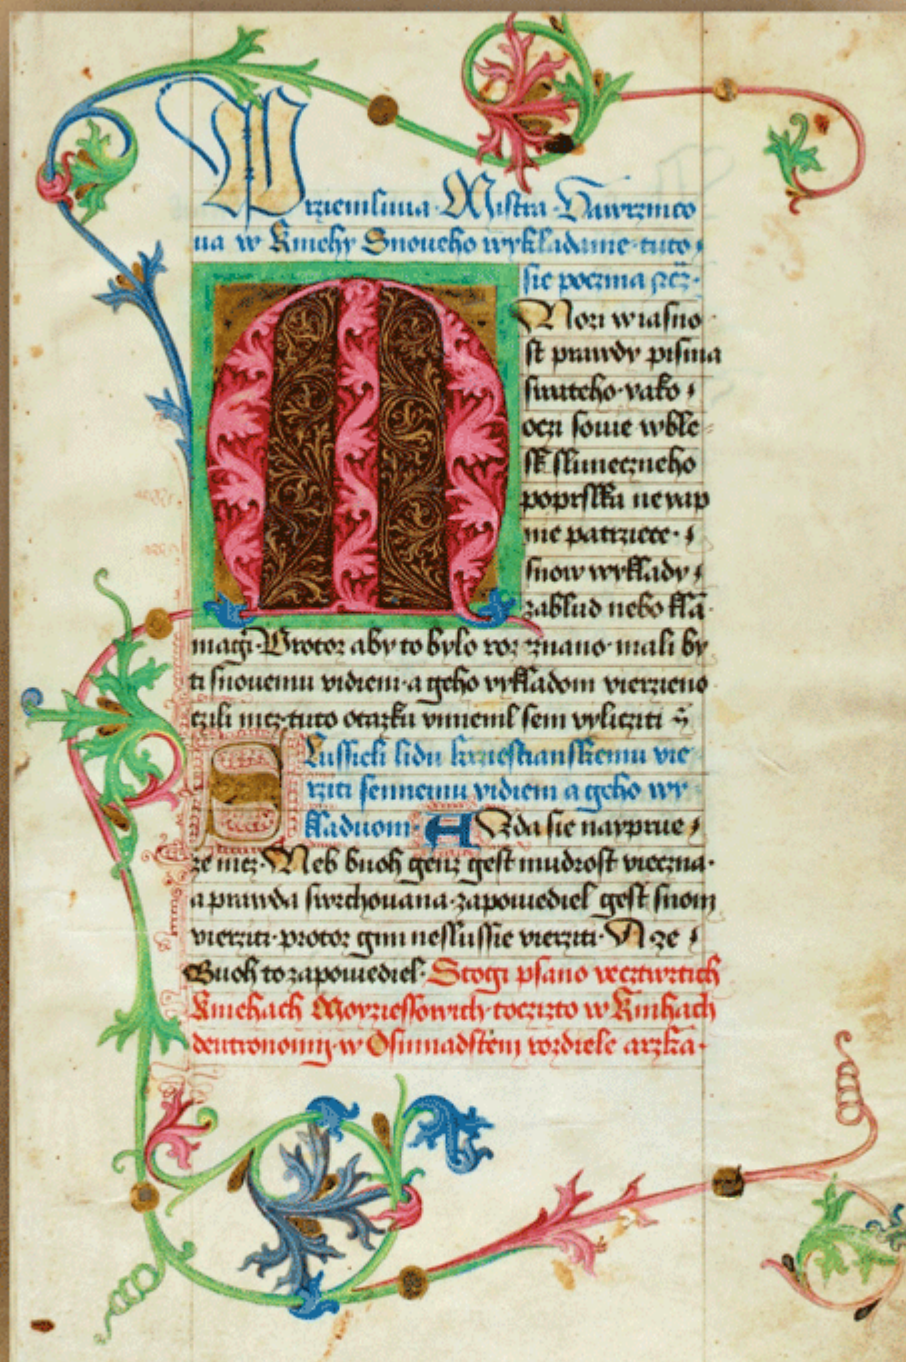 Prziemluwa Mistra Hawrzincο
ua w Kniehy Snoueho wykladanie tuto
sie poczina
Mori w iasno
st prawdy pisma
swateho yako
oczi sowie wble
sk sluneczneho
poprslku
nie patrziece
snow wyklady
zablud nebo kla
magi Protoz aby to bylo rozeznano mali by
ti snouemu vidieni a geho vykladom vierzieno
czili nicz tuto otazku vmienil sem vylicziti
Slussieli lidu krziestianskemu vie
rziti sennemu vidieni a geho wy
kladuom Azda sie nayprue
ze nicz Neb buoh genz gest mudrost vieczna
a prawda swrchouana zapouiediel gest snom
vierziti protoz gim neslussie vierziti A ze
Buoh to zapouiediel Stogi psano veczwrtich
Kniehach Moyziessowych toczizto w Knihach
deutronomy w Osmnadstem rozdiele arzka